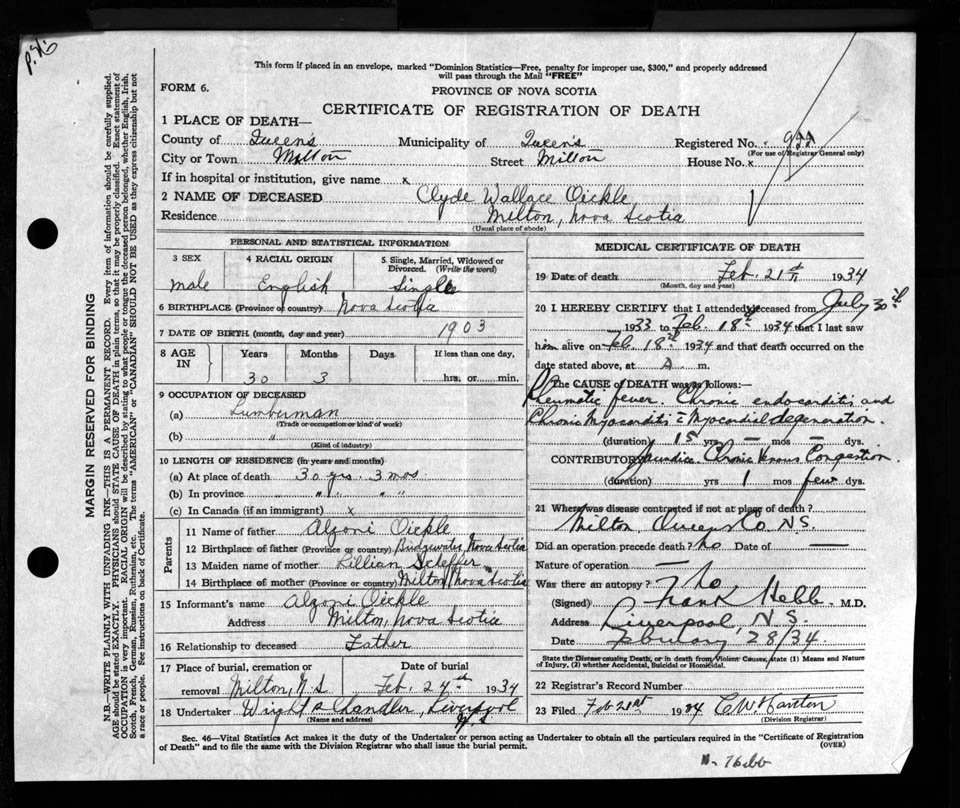 This form if placed in an envelope, marked "Dominion Statistics—Free, penalty for improper use, $300," and properly addressed
will pass through the Mail "FREE"
FORM 6.
PROVINCE OF NOVA SCOTIA
CERTIFICATE OF REGISTRATION OF DEATH
1 PLACE OF DEATH—
County of Queen's Municipality of Queen's Registered No.
(For use of Registrar General only)
City or Town Milton Street Milton House No. x
If in hospital or institution, give name x
2 NAME OF DECEASED Clyde Wallace Oickle
Residence Milton, Nova Scotia
(Usual place of abode)
PERSONAL AND STATISTICAL INFORMATION
3 SEX 4 RACIAL ORIGIN 5 Single, Married, Widowed or
Divorced. (Write the word)
Male English Single
6 BIRTHPLACE (Province or country) Nova Scotia
7 DATE OF BIRTH (month, day and year) 1903
8 AGE IN Years Months Days If less than one day,
30 3 hrs. or min.
9 OCCUPATION OF DECEASED
(a) Lumberman
(Trade or occupation or kind of work)
(b) "
(Kind of industry)
10 LENGTH OF RESIDENCE (in years and months)
(a) At place of death 30 yrs. 3 mos.
(b) In province " " " "
(c) In Canada (if an immigrant) x
Parents
11 Name of father Alzoni Oickle
12 Birthplace of father (Province or country) Bridgewater, Nova Scotia
13 Maiden name of mother Lillian Scheffer
14 Birthplace of mother (Province or country) Milton, Nova Scotia
15 Informant's name Alzoni Oickle
Address Milton, Nova Scotia
16 Relationship to deceased Father
17 Place of burial, cremation or Date of burial
removal Milton, N.S. Feb. 24th 1934
18 Undertaker Wright & Chandler, Liverpool
N.S
(Name and address)
MEDICAL CERTIFICATE OF DEATH
19 Date of death Feb. 21st 1934
(Month, day and year)
20 I HEREBY CERTIFY that I attended deceased from July 30th
1933 to Feb. 18th 1934 that I last saw
him alive on Feb. 18th 1934 and that death occurred on the
date stated above, at A. m.
The CAUSE of DEATH was as follows:—
Rheumatic fever. Chronic endocarditis and
Chronic Myocarditis = Myocardial degeneration.
(duration) 15 yrs — mos — dys.
CONTRIBUTORY Jaundice. Chronic Venous Congestion.
(duration) yrs 1 mos few dys.
21 Where was disease contracted if not at place of death?
Milton, Queens Co N.S.
Did an operation precede death? No Date of —
Nature of operation —
Was there an autopsy? No
(Signed) Frank Hebb M.D.
Address Liverpool, N.S.
Date February 28/34.
State the Disease causing Death, or in death from Violent Causes, state (1) Means and Nature
of Injury, (2) whether Accidental, Suicidal or Homicidal.
22 Registrar's Record Number
23 Filed Feb 21st 1934
(Division Registrar)
Sec. 46—Vital Statistics Act makes it the duty of the Undertaker or person acting as Undertaker to obtain all the particulars required in the "Certificate of Registration
of Death" and to file the same with the Division Registrar who shall issue the burial permit.
(OVER)
MARGIN RESERVED FOR BINDING
N.B.—WRITE PLAINLY WITH UNFADING INK—THIS IS A PERMANENT RECORD. Every item of information should be carefully supplied.
AGE should be stated EXACTLY. PHYSICIANS should STATE CAUSE OF DEATH in plain terms, so that it may be properly classified. Exact statement of
OCCUPATION is very important. RACIAL ORIGIN will be described by stating to what people or tongue the deceased person belonged, whether English, Irish,
Scotch, French, German, Russian, Ruthenian, etc. The terms "AMERICAN" or "CANADIAN" SHOULD NOT BE USED as they express citizenship but not
a race or people. See instructions on back of Certificate.